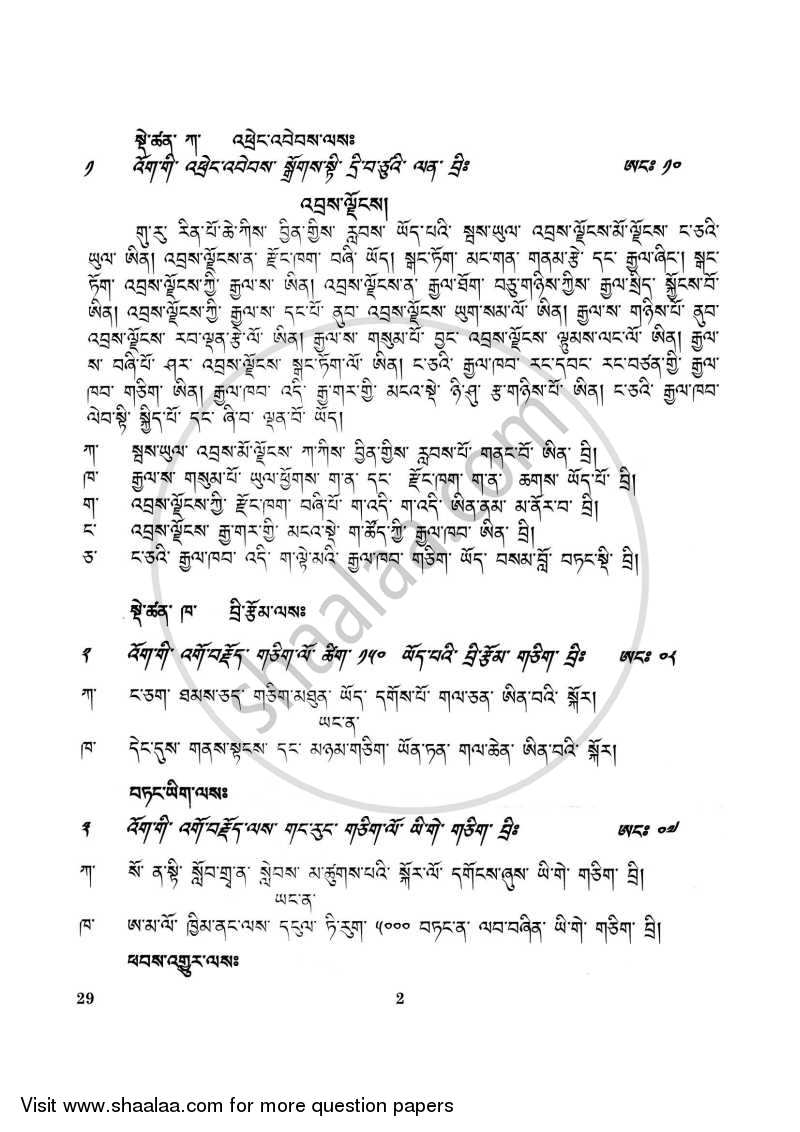 སྡེ་ཚན་ ཀ་ འཕྲེང་འབེབས་ལས༔
༡ འོག་གི་ འཕྲེང་འབེབས་ སྒྲོགས་སྟི་ དྲི་བ་ཙུའི་ ལན་ བྲི༔ ཨང༔ ༡༠
འབྲས་ལྗོངས།
གུ་རུ་ རིན་པོ་ཆེ་ཀིས་ བྱིན་གྱིས་ རླབས་ ཡོད་པའི་ སྦས་ཡུལ་ འབྲས་ལྗོངས་མོ་ལྗོངས་ ང་ཅའི་
ཡུལ་ ཨིན། འབྲས་ལྗོངས་ན་ རྫོང་ཁག་ བཞི་ ཡོད། སྒང་ཏོག་ མང་གན་ གནམ་རྩེ་ དང་ རྒྱལ་ཞིང་། སྒང་
ཏོག་ འབྲས་ལྗོངས་ཀྱི་ རྒྱལ་ས་ ཨིན། འབྲས་ལྗོངས་ན་ རྒྱལ་ཐོག་ བཅུ་གཉིས་ཀྱིས་ རྒྱལ་སྲིད་ སྐྱོངས་བོ་
ཨིན། འབྲས་ལྗོངས་ཀྱི་ རྒྱལ་ས་ དང་པོ་ ནུབ་ འབྲས་ལྗོངས་ ཡུག་སམ་ལོ་ ཨིན། རྒྱལ་ས་ གཉིས་པོ་ ནུབ་
འབྲས་ལྗོངས་ རབ་ལྡན་རྩེ་ལོ་ ཨིན། རྒྱལ་ས་ གསུམ་པོ་ བྱང་ འབྲས་ལྗོངས་ ལྷུམས་ལང་ལོ་ ཨིན། རྒྱལ་
ས་ བཞི་པོ་ ཤར་ འབྲས་ལྗོངས་ སྒང་ཏོག་ལོ་ ཨིན། ང་ཅའི་ རྒྱལ་ཁབ་ རང་དབང་ རང་བཙན་གྱི་ རྒྱལ་
ཁབ་ གཅིག་ ཨིན། རྒྱལ་ཁབ་ འདི་ རྒྱ་གར་གྱི་ མངའ་སྡེ་ ཉི་ཤུ་ རྩ་གཉིས་པོ་ ཨིན། ང་ཅའི་ རྒྱལ་ཁབ་
ལེབ་སྟི་ སྐྱིད་པོ་ དང་ ཞི་བ་ ལྡན་བོ་ ཡོད།
ཀ་ སྦས་ཡུལ་ འབྲས་མོ་ལྗོངས་ ཀ་ཀིས་ བྱིན་གྱིས་ རླབས་པོ་ གནང་བོ་ ཨིན་ བྲི།
ཁ་ རྒྱལ་ས་ གསུམ་པོ་ ཡུལ་ཕྱོགས་ ག་ན་ དང་ རྫོང་ཁག་ ག་ན་ ཆགས་ ཡོད་པོ་ བྲི།
ག་ འབྲས་ལྗོངས་ཀྱི་ རྫོང་ཁག་ བཞི་པོ་ ག་འདི་ ག་འདི་ ཨིན་ནམ་ མ་ནོར་བ་ བྲི།
ང་ འབྲས་ལྗོངས་ རྒྱ་གར་གྱི་ མངའ་སྡེ་ ག་ཚོད་ཀྱི་ རྒྱལ་ཁབ་ ཨིན་ བྲི།
ཅ་ ང་ཅའི་ རྒྱལ་ཁབ་ འདི་ ག་ལྟེ་མའི་ རྒྱལ་ཁབ་ གཅིག་ ཡོད་ བསམ་བློ་ བཏང་སྡི་ བྲི།
སྡེ་ཚན་ ཁ་ བྲི་རྩོམ་ལས༔
༢ འོག་གི་ འགོ་བརྗོད་ གཅིག་ལོ་ ཚིག་ ༡༥༠ ཡོད་པའི་ བྲི་རྩོམ་ གཅིག་ བྲི༔ ཨང༔ ༠༨
ཀ་ ང་ཅག་ ཐམས་ཅད་ གཅིག་མཐུན་ ཡོད་ དགོས་པོ་ གལ་ཅན་ ཨིན་བའི་ སྐོར།
ཡང་ན་
ཁ་ དེང་དུས་ གནས་སྟངས་ དང་ མཉམ་གཅིག་ ཡོན་ཏན་ གལ་ཆེན་ ཨིན་བའི་ སྐོར།
བཏང་ཡིག་ལས༔
༣ འོག་གི་ འགོ་བརྗོད་ལས་ གང་རུང་ གཅིག་ལོ་ ཡི་གེ་ གཅིག་ བྲི༔ ཨང༔ ༠༧
ཀ་ སོ་ ན་སྟི་ སློབ་གྲྭ་ན་ སླེབས་ མ་ཚུགས་པའི་ སྐོར་ལོ་ དགོངས་ཞུས་ ཡི་གེ་ གཅིག་ བྲི།
ཡང་ན་
ཁ་ ཨ་མ་ལོ་ ཁྱིམ་ནང་ལས་ དངུལ་ ཏི་རུག་ ༥༠༠༠ བཏང་ན་ ལབ་བཞིན་ ཡི་གེ་ གཅིག་ བྲི།
ཕབས་འགྱུར་ལས༔
29 2
shaalaa.com
Visit www.shaalaa.com for more question papers